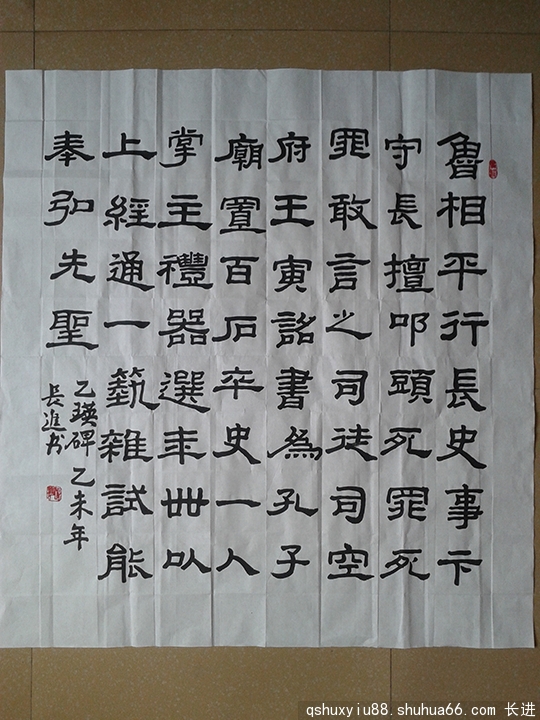 魯相平行長史事卞
守長擅叩頭死罪死
罪敢言之司徒司空
府王寅詔書為孔子
廟置百石卒史一人
掌主禮器選年卌以
上經通一藝雜試能
奉弘先聖
乙瑛碑 乙未年
長進书
qshuxyiu88.shuhua66.com 长进